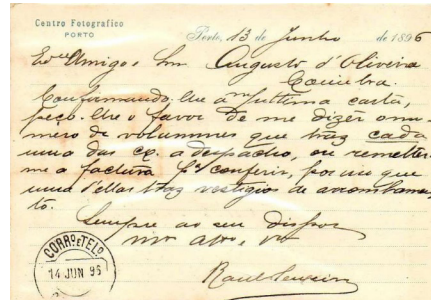 Centro Fotografico
PORTO
Porto, 13 de Junho de 1896
Amigo e Snr Augusto d'Oliveira
Coimbra.
Confirmando-lhe a m/ ultima carta,
peço-lhe o favor de me dizer o nu-
mero de volummes que traz cada
uma das cx. a despacho, ou remetter-
me a factura pª conferir, por isso que
uma d'ellas traz vestigio de arrombamen-
to.
Sempre ao seu dispor
CORRO E TELO
14 JUN 96
Raul